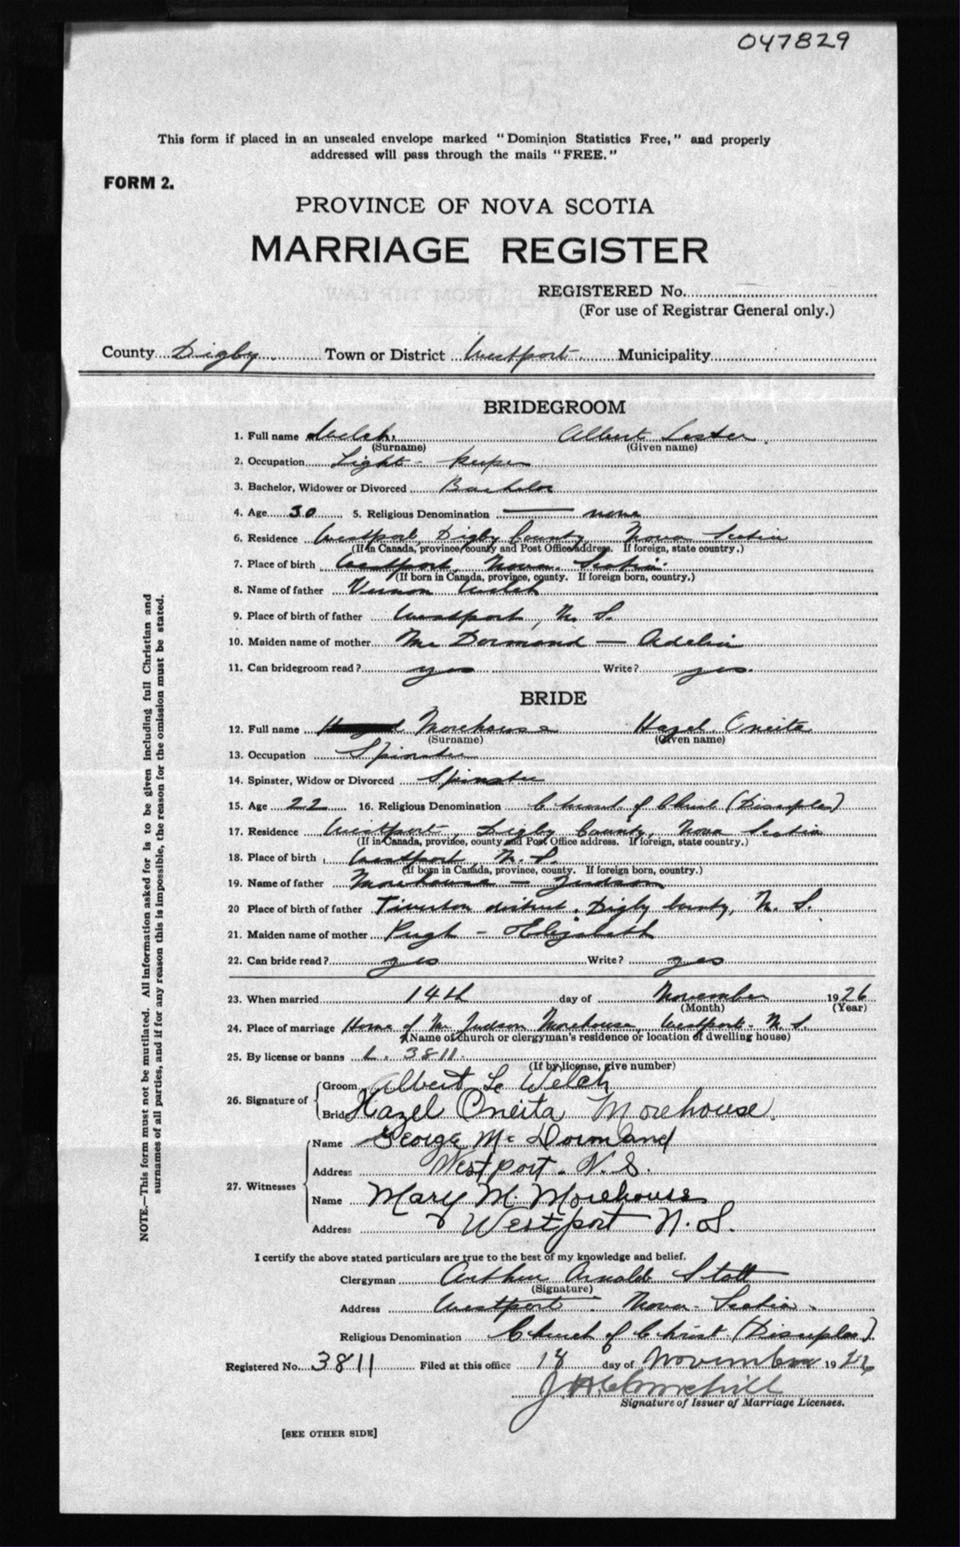 047829
This form if placed in an unsealed envelope marked "Dominion Statistics Free," and properly
addressed will pass through the mails "FREE."
FORM 2.
PROVINCE OF NOVA SCOTIA
MARRIAGE REGISTER
REGISTERED No.
(For use of Registrar General only.)
County Digby Town or District Westport Municipality
BRIDEGROOM
1. Full name Welch, Albert Lester
(Surname) (Given name)
2. Occupation Light-keeper
3. Bachelor, Widower or Divorced Bachelor
4. Age 30 5. Religious Denomination — none
6. Residence Westport, Digby County, Nova Scotia
(If in Canada, province, county and Post Office Address. If foreign, state country.)
7. Place of birth Westport, Nova Scotia
(If born in Canada, province, county. If foreign born, country.)
8. Name of father Vernon Welch
9. Place of birth of father Westport, N. S.
10. Maiden name of mother Mc Dormand — Adelia
11. Can bridegroom read? yes Write? yes.
BRIDE
12. Full name Morehouse Hazel Oneita
(Surname) (Given name)
13. Occupation Spinster
14. Spinster, Widow or Divorced Spinster
15. Age 22 16. Religious Denomination Church of Christ (Disciples)
17. Residence Westport, Digby County, Nova Scotia
(If in Canada, province, county and Post Office address. If foreign, state country.)
18. Place of birth Westport, N. S.
(If born in Canada, province, county. If foreign born, country.)
19. Name of father Morehouse — Judson
20 Place of birth of father Tiverton district, Digby County, N. S.
21. Maiden name of mother Pugh — Elizabeth
22. Can bride read? yes Write? yes
23. When married 14th day of November 1926
(Month) (Year)
24. Place of marriage Home of Mr Judson Morehouse, Westport. N. S.
(Name of church or clergyman's residence or location of dwelling house)
25. By license or banns L. 3811.
(If by license, give number)
26. Signature of Groom Albert L Welch
Bride Hazel Oneita Morehouse.
27. Witnesses Name George Mc Dormand
Address Westport. N. S.
Name Mary M. Morehouse
Address Westport N. S.
I certify the above stated particulars are true to the best of my knowledge and belief.
Clergyman Arthur Arnold Stott
(Signature)
Address Westport. Nova Scotia.
Religious Denomination Church of Christ (Disciples).
Registered No. 3811 Filed at this office 18 day of November 1926
Signature of Issuer of Marriage Licenses.
[SEE OTHER SIDE]
NOTE.—This form must not be mutilated. All information asked for is to be given including full Christian and
surnames of all parties, and if for any reason this is impossible, the reason for the omission must be stated.